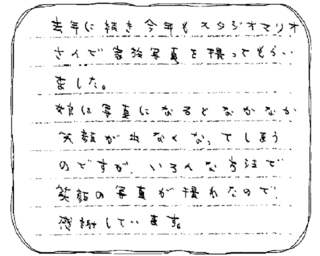 去年に続き今年もスタジオマリオ
さんで家族写真を撮ってもらい
ました。
娘は写真になるとなかなか
笑顔が出なくなってしまう
のですが、いろんな方法で
笑顔の写真が撮れたので、
感謝しています。